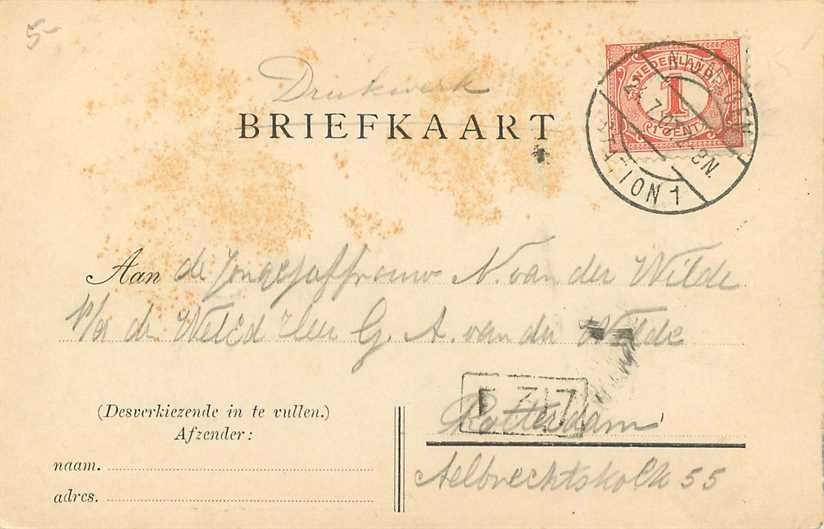 5-
Drukwerk
BRIEFKAART
NEDERLAND
1
CENT
Aan de Jongejuffrouw N. van der Wilde
p/a de WelEd Heer G. A. van der Wilde
(Desverkiezende in te vullen.)
Afzender:
Rotterdam
naam.
Aelbrechtskolk 55
adres.